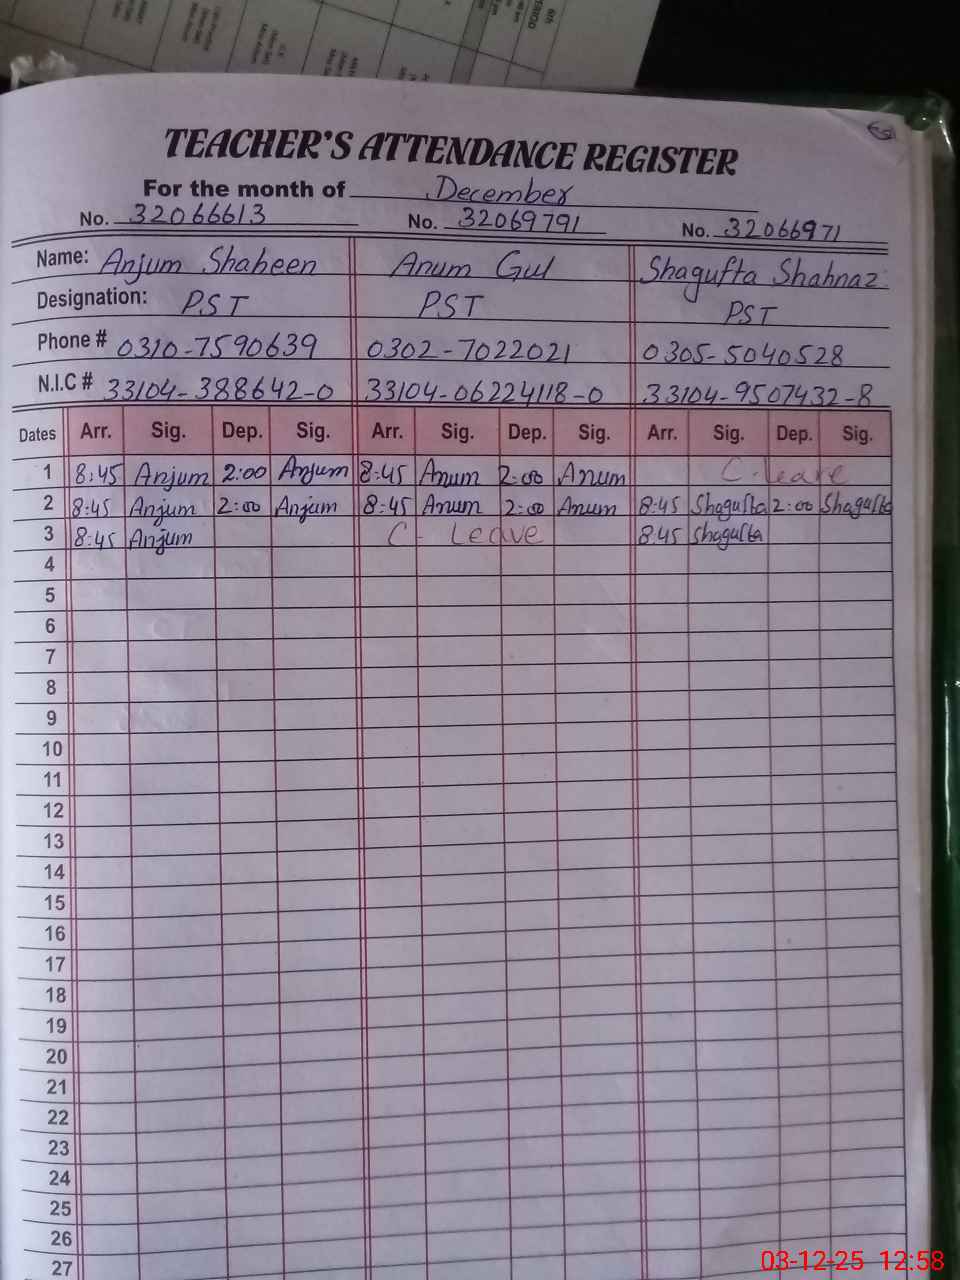 6th
TEACHER'S ATTENDANCE REGISTER
For the month of December
No. 32066613 No. 32069791 No. 32066971
Name: Anjum Shaheen Anum Gul Shagufta Shahnaz
Designation: PST PST PST
Phone # 0310-7590639 0302-7022021 0305-5040528
N.I.C # 33104-388642-0 33104-06224118-0 33104-9507432-8
Dates Arr. Sig. Dep. Sig. Arr. Sig. Dep. Sig. Arr. Sig. Dep. Sig.
1 8:45 Anjum 2:00 Anjum 8:45 Anum 2:00 Anum C-leave
2 8:45 Anjum 2:00 Anjum 8:45 Anum 2:00 Anum 8:45 Shagufta 2:00 Shagufta
3 8:45 Anjum C- Leave 8:45 Shagufta
4
5
6
7
8
9
10
11
12
13
14
15
16
17
18
19
20
21
22
23
24
25
26
27
03-12-25 12:58